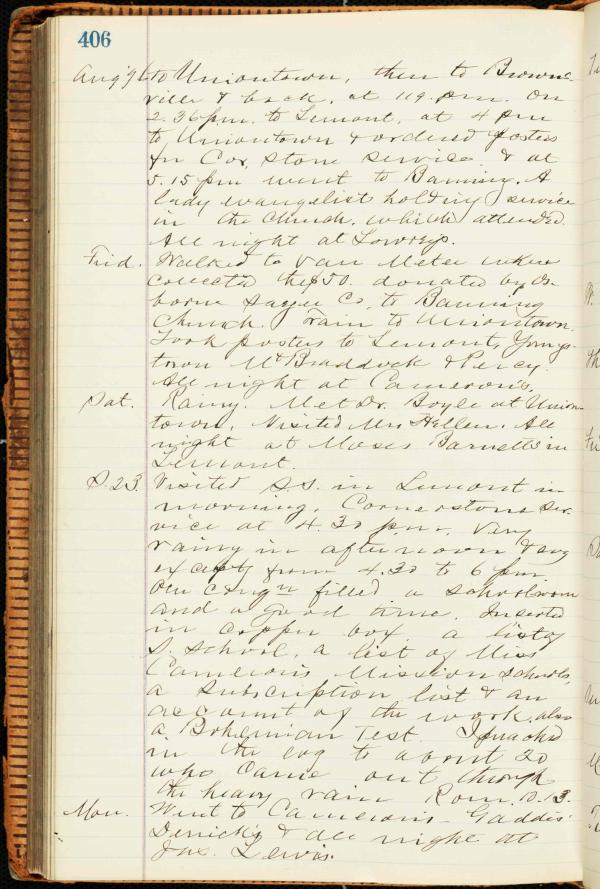 406
Aug '91 to Uniontown, then to Browns
ville & back, at 119. p.m. On
2.36 pm. to Lemont, at 4 pm
to Uniontown & ordered posters
for Cor. stone service & at
5.15 pm went to Banning. A
lady evangelist holding service
in the Church, which attended.
All night at Lowrys.
Frid. Walked to Van Meter where
collected the $50. donated by Os-
borne Co. to Banning
Church. Train to Uniontown.
Took posters to Lemont, Youngs-
town Mt Braddock & Percy.
All night at Cameron's.
Sat. Rainy. Met Dr. Boyle at Union-
town. Visited Mrs Hellen. All
night at Moses Barnetts in
Lemont.
S. 23. Visited S.S. in Lemont in
morning. Cornerstone Ser-
vice at 4.30 p.m. Very
rainy in afternoon & evg
except from 4.30 to 6 pm.
Our congn filled a schoolroom
and a good time. Inserted
in copper box, a list of
S. School, a list of Miss
Cameron's Mission schools,
a subscription list & an
account of the work, also
a Bohemian Test. I preached
in the evg to about 20
who came out through
the heavy rain Rom. 10.13.
Mon. Went to Camerons - Gaddis'
Derricks & all night at
Jas. Lewis.